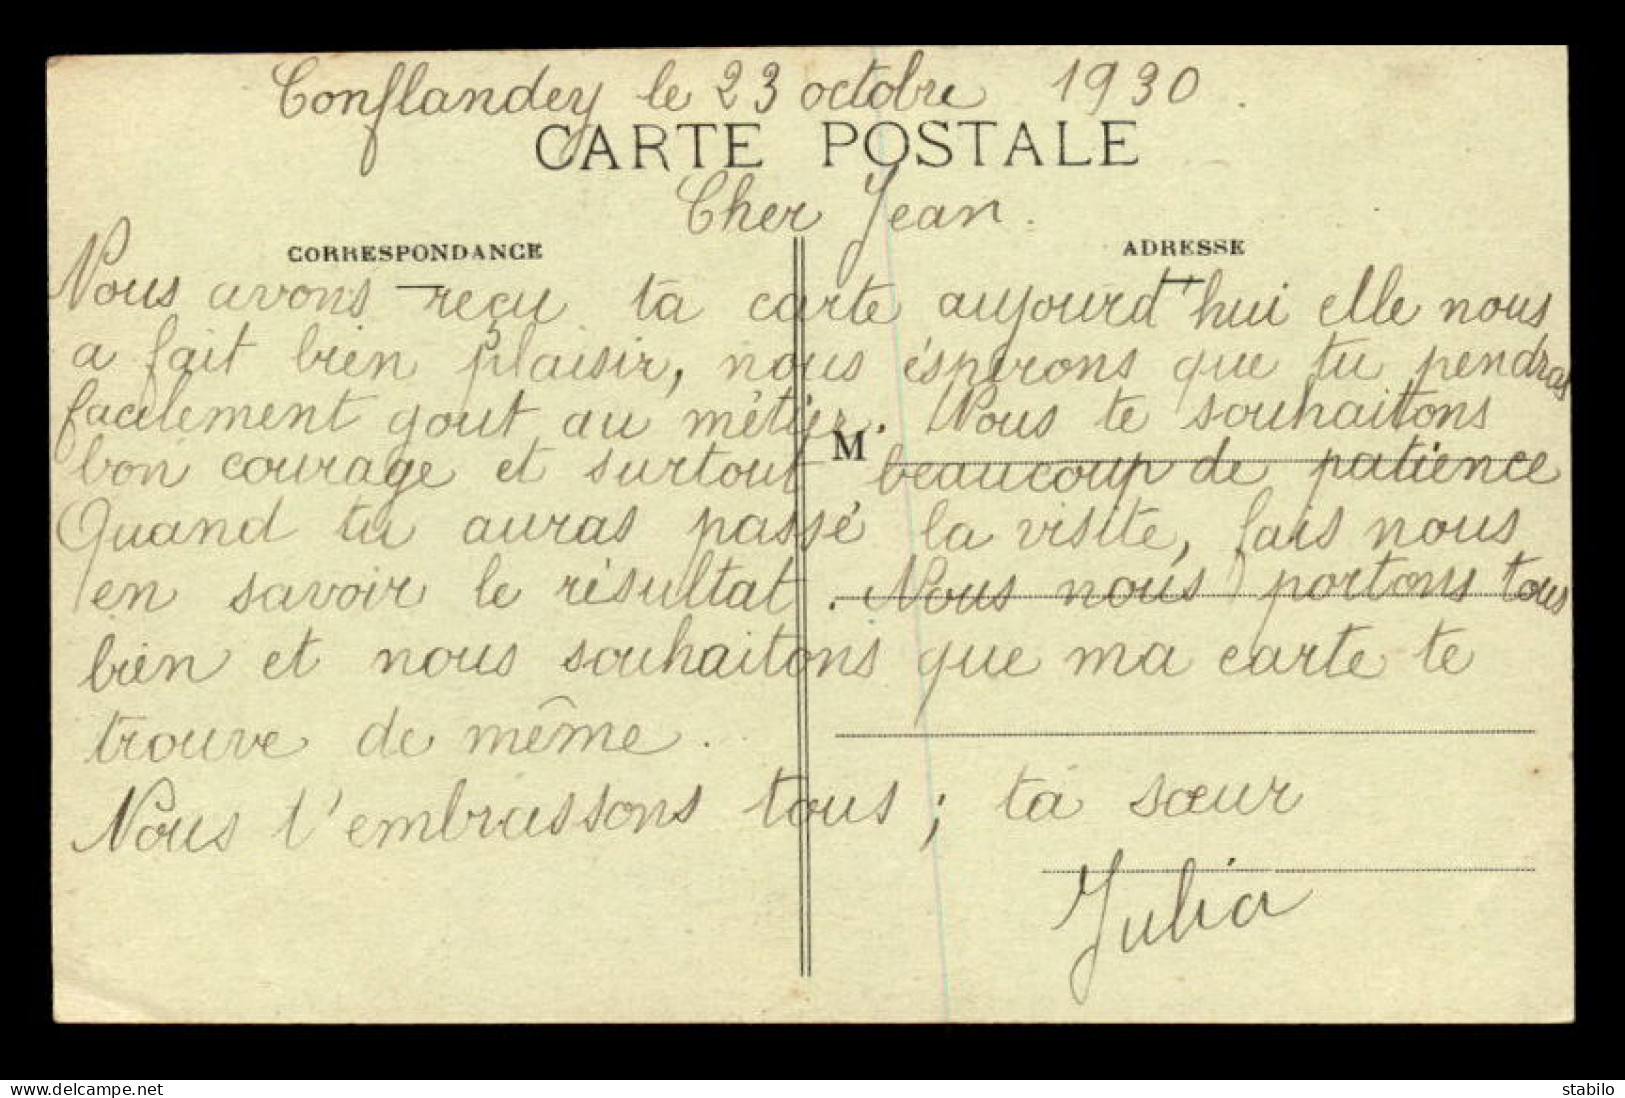 Conflandey le 23 octobre 1930.
CARTE POSTALE
Cher Jean.
CORRESPONDANCE
ADRESSE
Nous avons reçu ta carte aujourd'hui elle nous
a fait bien plaisir, nous ésperons que tu pendras
facilement gout au métier. Nous te souhaitons
M
bon courage et surtout beaucoup de patience
Quand tu auras passé la visite, fais nous
en savoir le résultat. Nous nous portons tous
bien et nous souhaitons que ma carte te
trouve de même.
Nous t'embrassons tous ; ta sœur
Julia
www.delcampe.net
stabilo